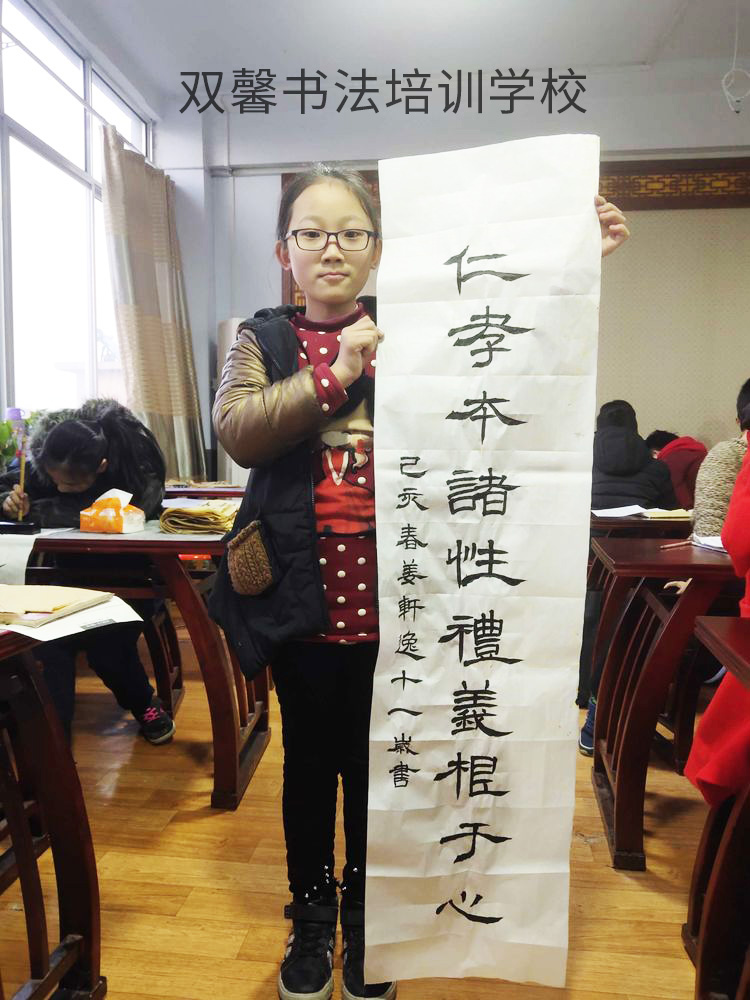 双馨书法培训学校
仁孝本諸性禮義根于心
己亥春姜軒逸十一歲書